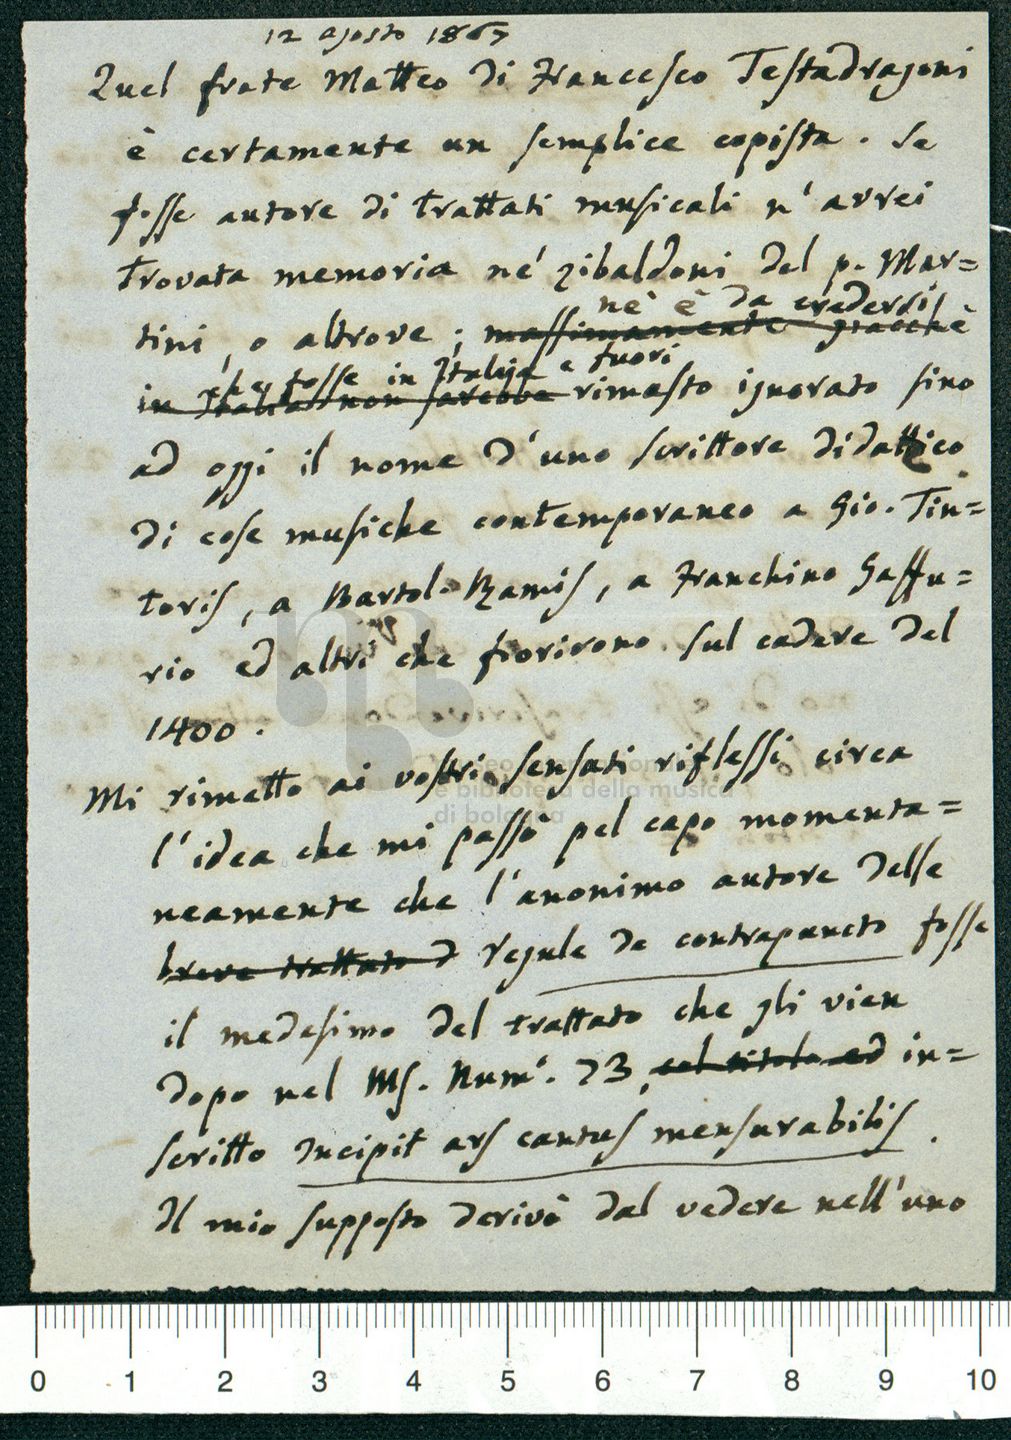 12 agosto 1865
Quel frate Matteo di Francesco Testadragoni
è certamente un semplice copista. Se
fosse autore di trattati musicali n'avrei
trovata memoria né zibaldoni del p. Mar=
tini, o altrove; massimamente giacchè
né è da credersi
che fosse in Italia e fuori
in Italia non sarebbe rimasto ignorato sino
ad oggi il nome d'uno scrittore didattico
di cose musiche contemporaneo a Gio. Tin=
toris, a Bartol. Ramis, a Franchino Gaffu=
rio ed altri che fiorirono sul cadere del
1400.
Mi rimetto ai vostri sensati riflessi circa
l'idea che mi passò pel capo momenta=
neamente che l'anonimo autore delle
breve trattato d regule de contrapuncto fosse
il medesimo del trattato che gli vien
dopo nel MS. Num. 23, col titolo ed in=
scritto Incipit ars cantus mensurabilis.
Il mio supposto derivò dal vedere nell'uno
museo internazionale
e biblioteca della musica
di bologna
0 1 2 3 4 5 6 7 8 9 10